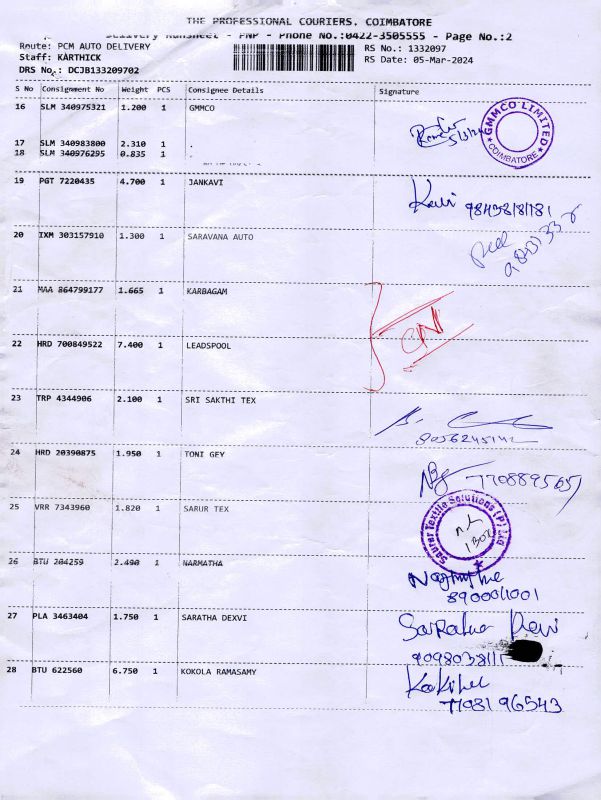 THE PROFESSIONAL COURIERS. COIMBATORE
Delivery Runsheet - PNP - Phone No.:0422-3505555 - Page No.:2
Route: PCM AUTO DELIVERY
RS No.: 1332097
Staff: KARTHICK
RS Date: 05-Mar-2024
DRS No.: DCJB133209702
S No Consignment No Weight PCS Consignee Details Signature
16 SLM 340975321 1.200 1 GMMCO
GMMCO LIMITED
COIMBATORE
17 SLM 340983800 2.310 1 .
18 SLM 340976295 0.835 1 .
19 PGT 7220435 4.700 1 JANKAVI
Kavi
20 IXM 303157910 1.300 1 SARAVANA AUTO
21 MAA 864799177 1.665 1 KARBAGAM
22 HRD 700849522 7.400 1 LEADSPOOL
23 TRP 4344906 2.100 1 SRI SAKTHI TEX
8056245142
24 HRD 20390875 1.950 1 TONI GEY
7708895651
25 VRR 7343960 1.820 1 SARUR TEX
Saurer Textile Solutions (P) Ltd
26 BTU 204259 2.490 1 NARMATHA
8900001001
27 PLA 3463404 1.750 1 SARATHA DEXVI
Saratha Devi
28 BTU 622560 6.750 1 KOKOLA RAMASAMY
7708196543